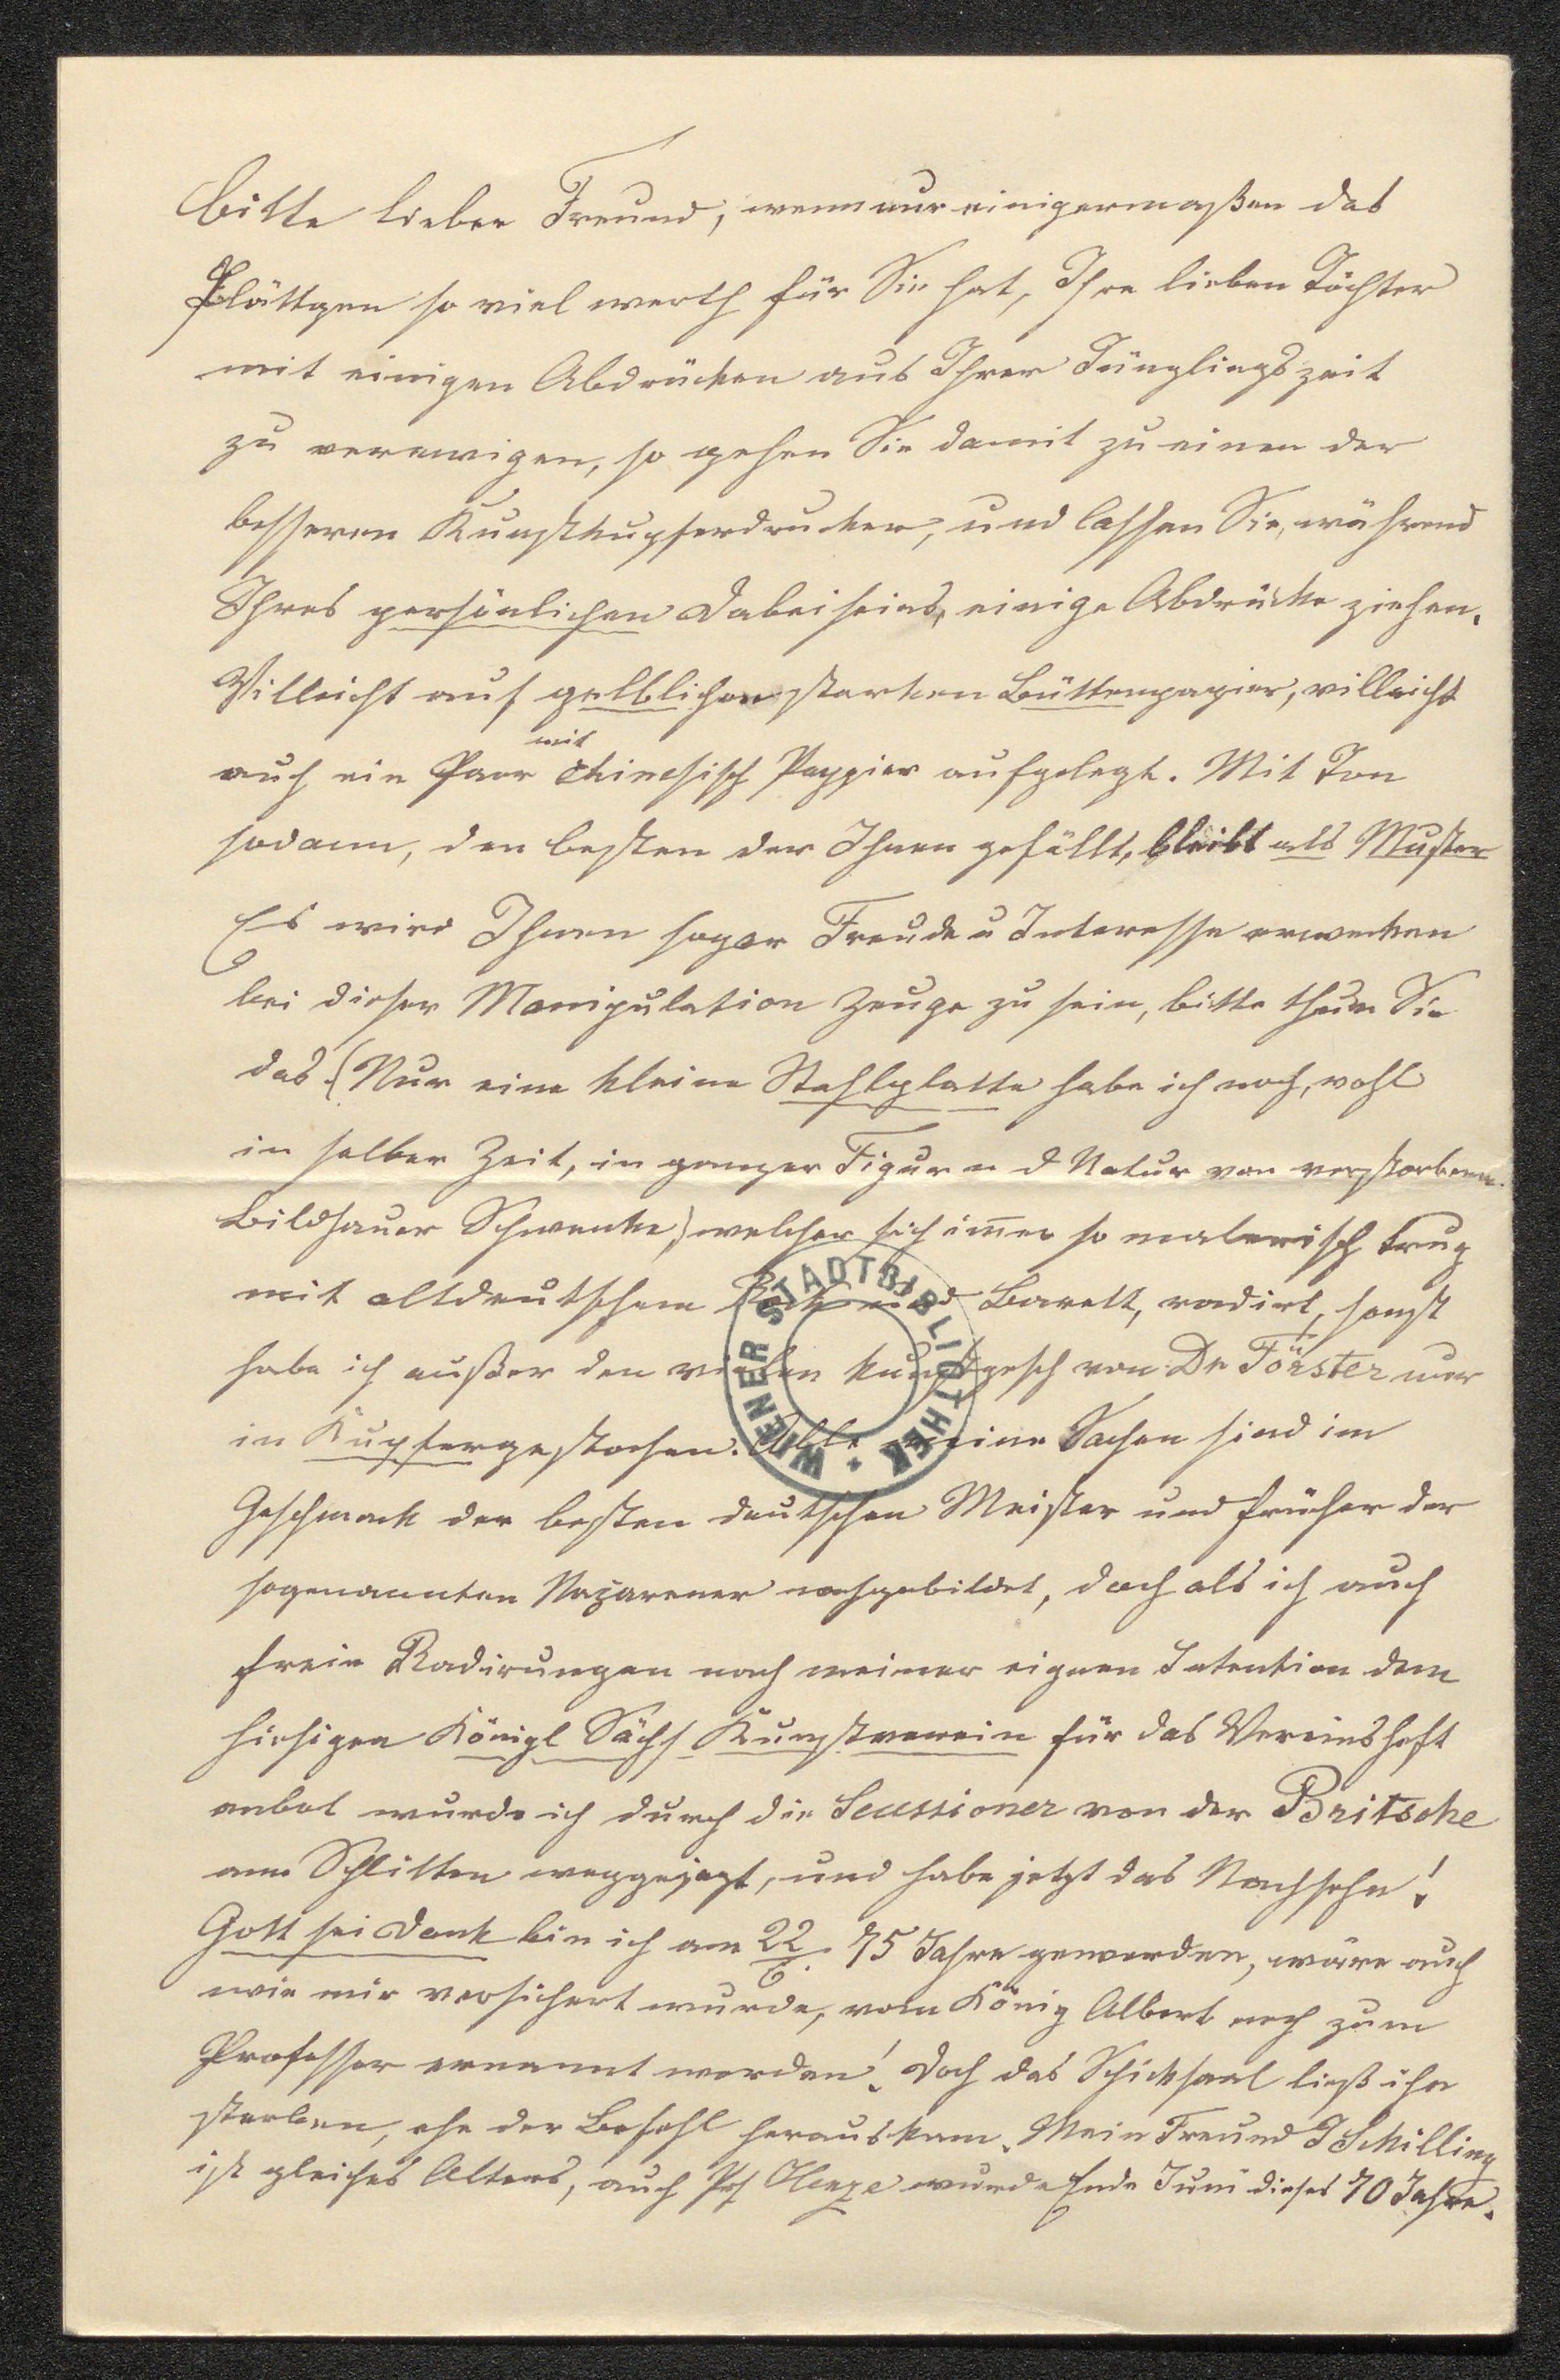 bitte lieber Freund, wenn nur einigermaßen das
Plättgen so viel werth für Sie hat, Ihre lieben Töchter
mit einigen Abdrücken aus Ihrer Jünglingszeit
zu verewigen, so gehen Sie damit zu einen der
besseren Kunstkupferdrucker, und lassen Sie, während
Ihres persönlichen Dabeiseins, einige Abdrücke ziehen.
Villeicht auf gelblichen starken Büttenpapier, villeicht
auch ein Paar mit chinesisch Pappier aufgelegt. Mit Ton
sodann, den besten der Ihnen gefällt, bleibt als Muster
Es wird Ihnen sogar Freude u Interesse erwecken
bei dieser Manipulation Zeuge zu sein, bitte thun Sie
das. (Nur eine kleine Stahlplatte habe ich noch, wohl
in selber Zeit, in ganzer Figur n d Natur von verstorbenen
Bildhauer Schwenke,) welcher sich im̄er so malerisch trug
mit altdeutschem Rock und Barett, radirt, sonst
habe ich außer den vielen kunstgesch von Dr Förster nur
in Kupfer gestochen. Alle meine Sachen sind im
Geschmack der besten deutschen Meister und früher der
sogenannten Nazarener nachgebildet, doch als ich auch
freie Radirungen nach meiner eignen Intention dem
hiesigen Königl Sächs Kunstverein für das Vereinsheft
anbot wurde ich durch die Secessioner von der Britsche
am Schlitten weggejagt, und habe jetzt das Nachsehn!
Gott sei Dank bin ich am 22. 75 Jahre geworden, wäre auch
wie mir versichert wurde, vom König Albert noch zum
Professor ernannt worden! Doch das Schicksaal ließ ihn
sterben, ehe der Befehl herauskam. Mein Freund J Schilling
ist gleiches Alters, auch Prf Henze wurde Ende Juni dieses 70 Jahre.
WIENER STADTBIBLIOTHEK